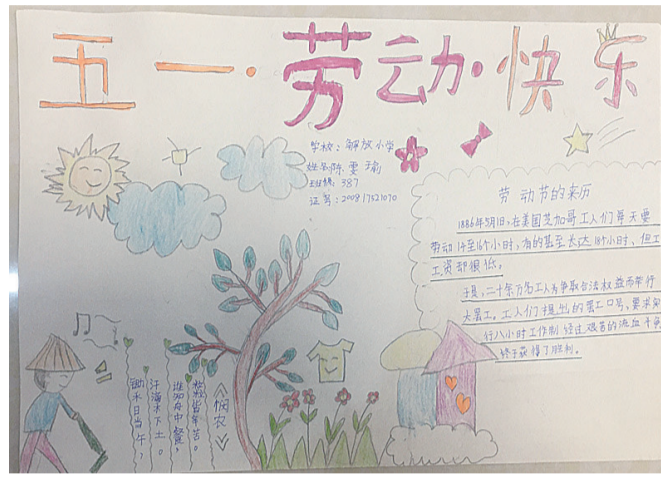 五一·劳动·快乐
学校：解放小学
姓名陈雯瑜
班级：387
劳动节的来历
1886年5月1日,在美国芝加哥工人们每天要
劳动14至16个小时,有的甚至长达18个小时、但工
工资却很低。
于是,二十余万名工人为争取合法权益而举行
大罢工。工人们提出的罢工口号、要求实
行八小时工作制 经过艰苦的流血斗争
终于获得了胜利。
《悯农》
锄禾日当午，
汗滴禾下土。
谁知盘中餐，
粒粒皆辛苦。